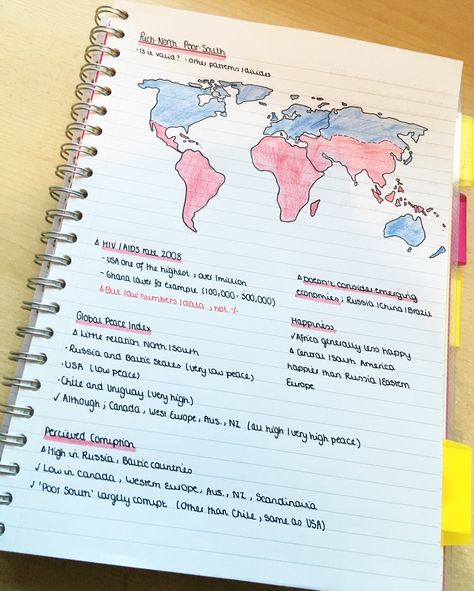 Rich North Poor South
· Is it valid? · Other patterns/divides
Δ HIV/AIDS rate 2008
- USA one of the highest, over 1 million
- Ghana lower for example (100,000 - 500,000)
Δ But raw numbers/data, not %
Δ Doesn't consider emerging
economies; Russia/China/Brazil
Global Peace Index
Δ Little relation North/South
· Russia and Baltic States (very low peace)
· USA (low peace)
· Chile and Uruguay (very high)
✓ Although; Canada, West Europe, Aus., NZ (all high/very high peace)
Happiness
✓ Africa generally less happy
Δ Central/South America
happier than Russia/Eastern
Europe
Perceived Corruption
Δ High in Russia, Baltic countries
✓ Low in Canada, Western Europe, Aus., NZ, Scandinavia
✓ 'Poor South' largely corrupt (other than Chile, same as USA)